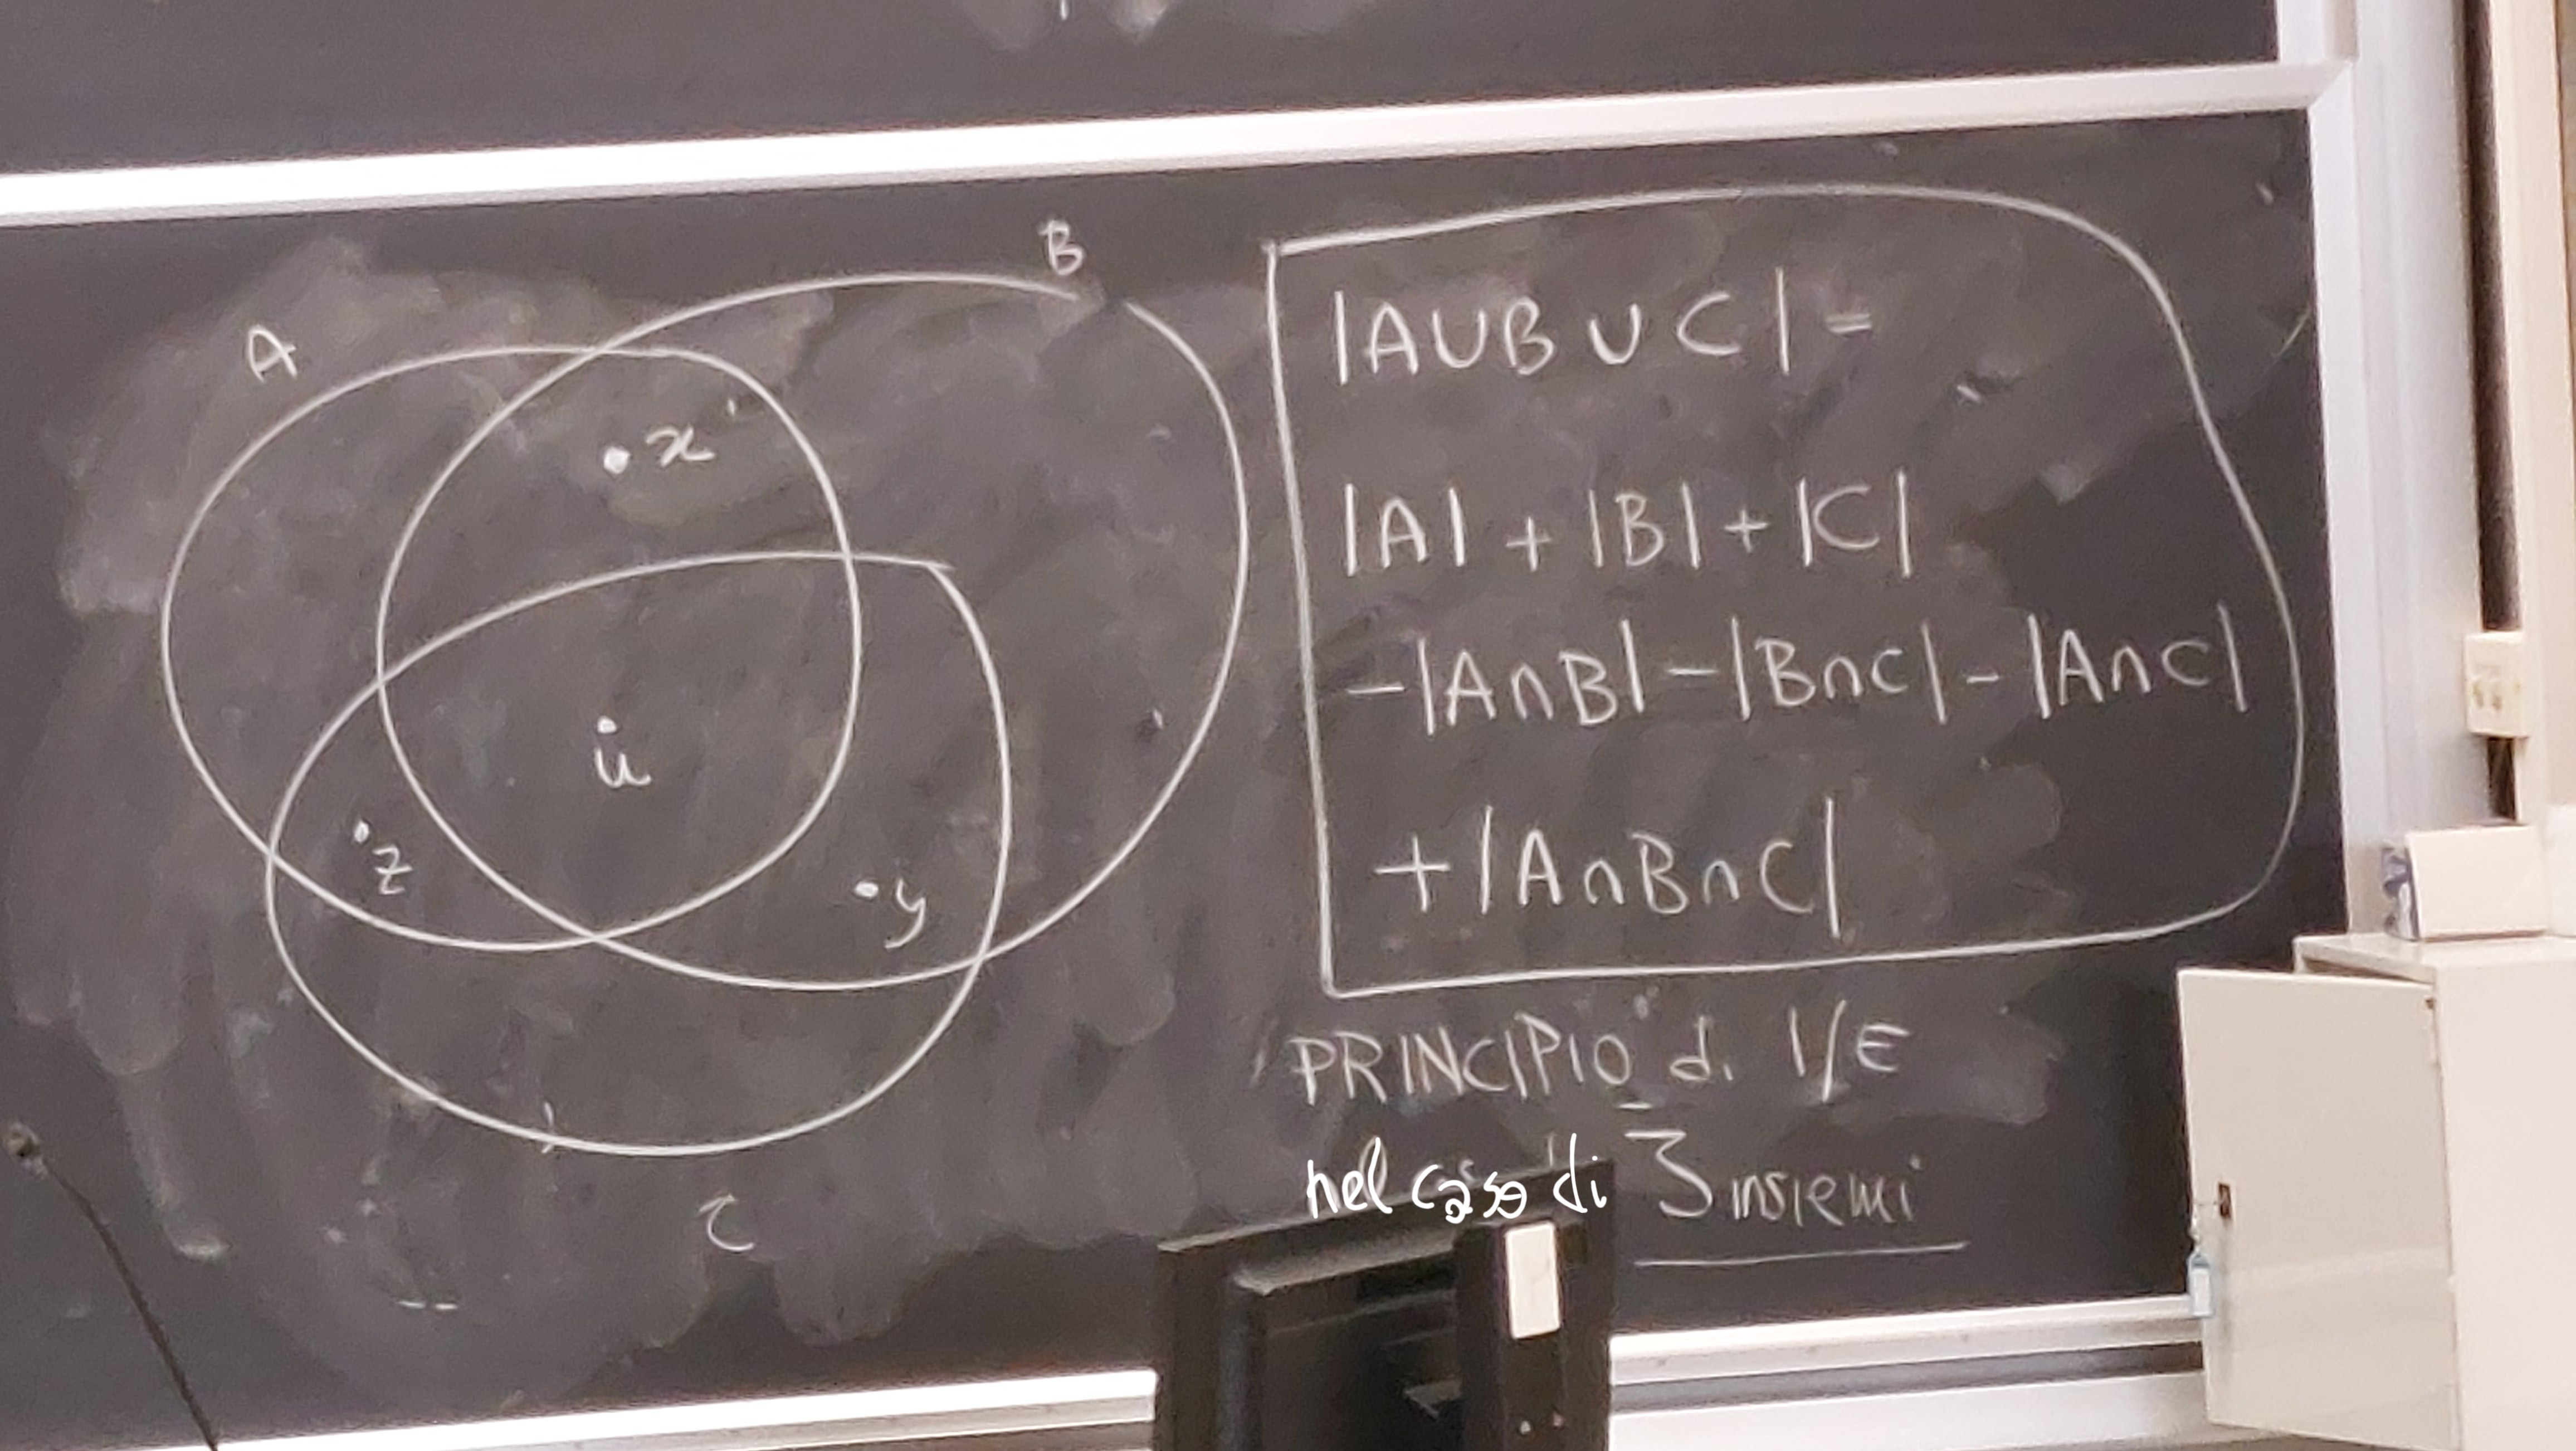 A
B
• x
u
• z
• y
C
|A∪B∪C| =
|A| + |B| + |C|
-|A∩B| - |B∩C| - |A∩C|
+ |A∩B∩C|
PRINCIPIO di I/E
nel caso di 3 insiemi